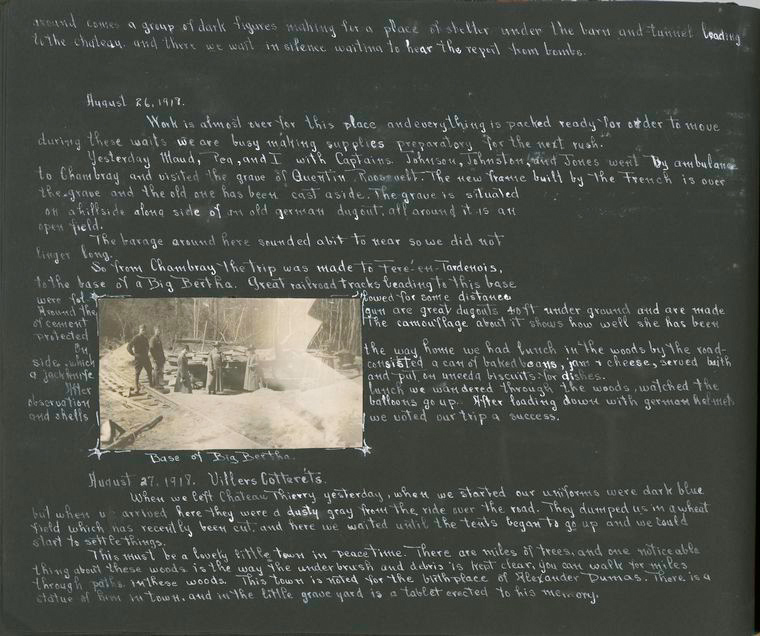 around comes a group of dark figures making for a place of shelter under the barn and tunnel leading
to the chateau, and there we wait in silence waiting to hear the report from bombs.
August 26, 1918.
Work is almost over for this place and everything is packed ready for order to move
during these waits we are busy making supplies preparatory for the next rush.
Yesterday Maud, Peg, and I with Captains Johnson, Johnston, and Jones went by ambulance
to Chambray and visited the grave of Quentin Roosevelt. The new frame built by the French is over
the grave and the old one has been cast aside. The grave is situated
on a hillside along side of an old german dugout, all around it is an
open field.
The barage around here sounded abit to near so we did not
linger long.
So from Chambray the trip was made to Fere-en-Tardenois,
to the base of a Big Bertha. Great railroad tracks leading to this base
were fol lowed for some distance
Around the gun are great dugouts 40 ft under ground and are made
of cement the camouflage about it shows how well she has been
protected
On the way home we had lunch in the woods by the road-
side which consisted a can of baked beans, jam & cheese, served with
a jack knife and put on uneeda biscuits for dishes.
After lunch we wandered through the woods, watched the
observation balloons go up. After loading down with german helmets
and shells we voted our trip a success.
Base of Big Bertha.
August 27, 1918. Villers Cotteréts.
When we left Chateau Thierry yesterday, when we started our uniforms were dark blue
but when we arrived here they were a dusty gray from the ride over the road. They dumped us in a wheat
field which has recently been cut, and here we waited until the tents began to go up and we could
start to settle things.
This must be a lovely little town in peace time. There are miles of trees, and one noticeable
thing about these woods is the way the underbrush and debris is kept clear, you can walk for miles
through paths in these woods. This town is noted for the birthplace of Alexander Dumas. There is a
statue of him in town, and in the little grave yard is a tablet erected to his memory.